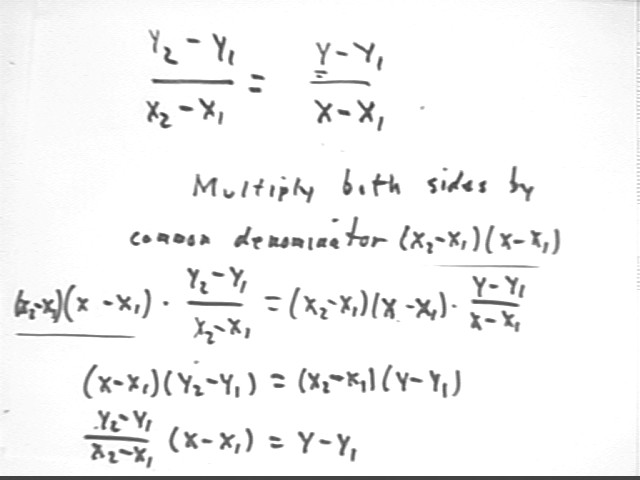 Y₂ - Y₁ / X₂ - X₁ = Y - Y₁ / X - X₁
Multiply both sides by
common denominator (X₂-X₁)(X-X₁)
(X₂-X₁)(X - X₁) · Y₂-Y₁ / X₂-X₁ = (X₂-X₁)(X-X₁) · Y-Y₁ / X-X₁
(X-X₁)(Y₂-Y₁) = (X₂-X₁)(Y-Y₁)
Y₂-Y₁ / X₂-X₁ (X-X₁) = Y-Y₁